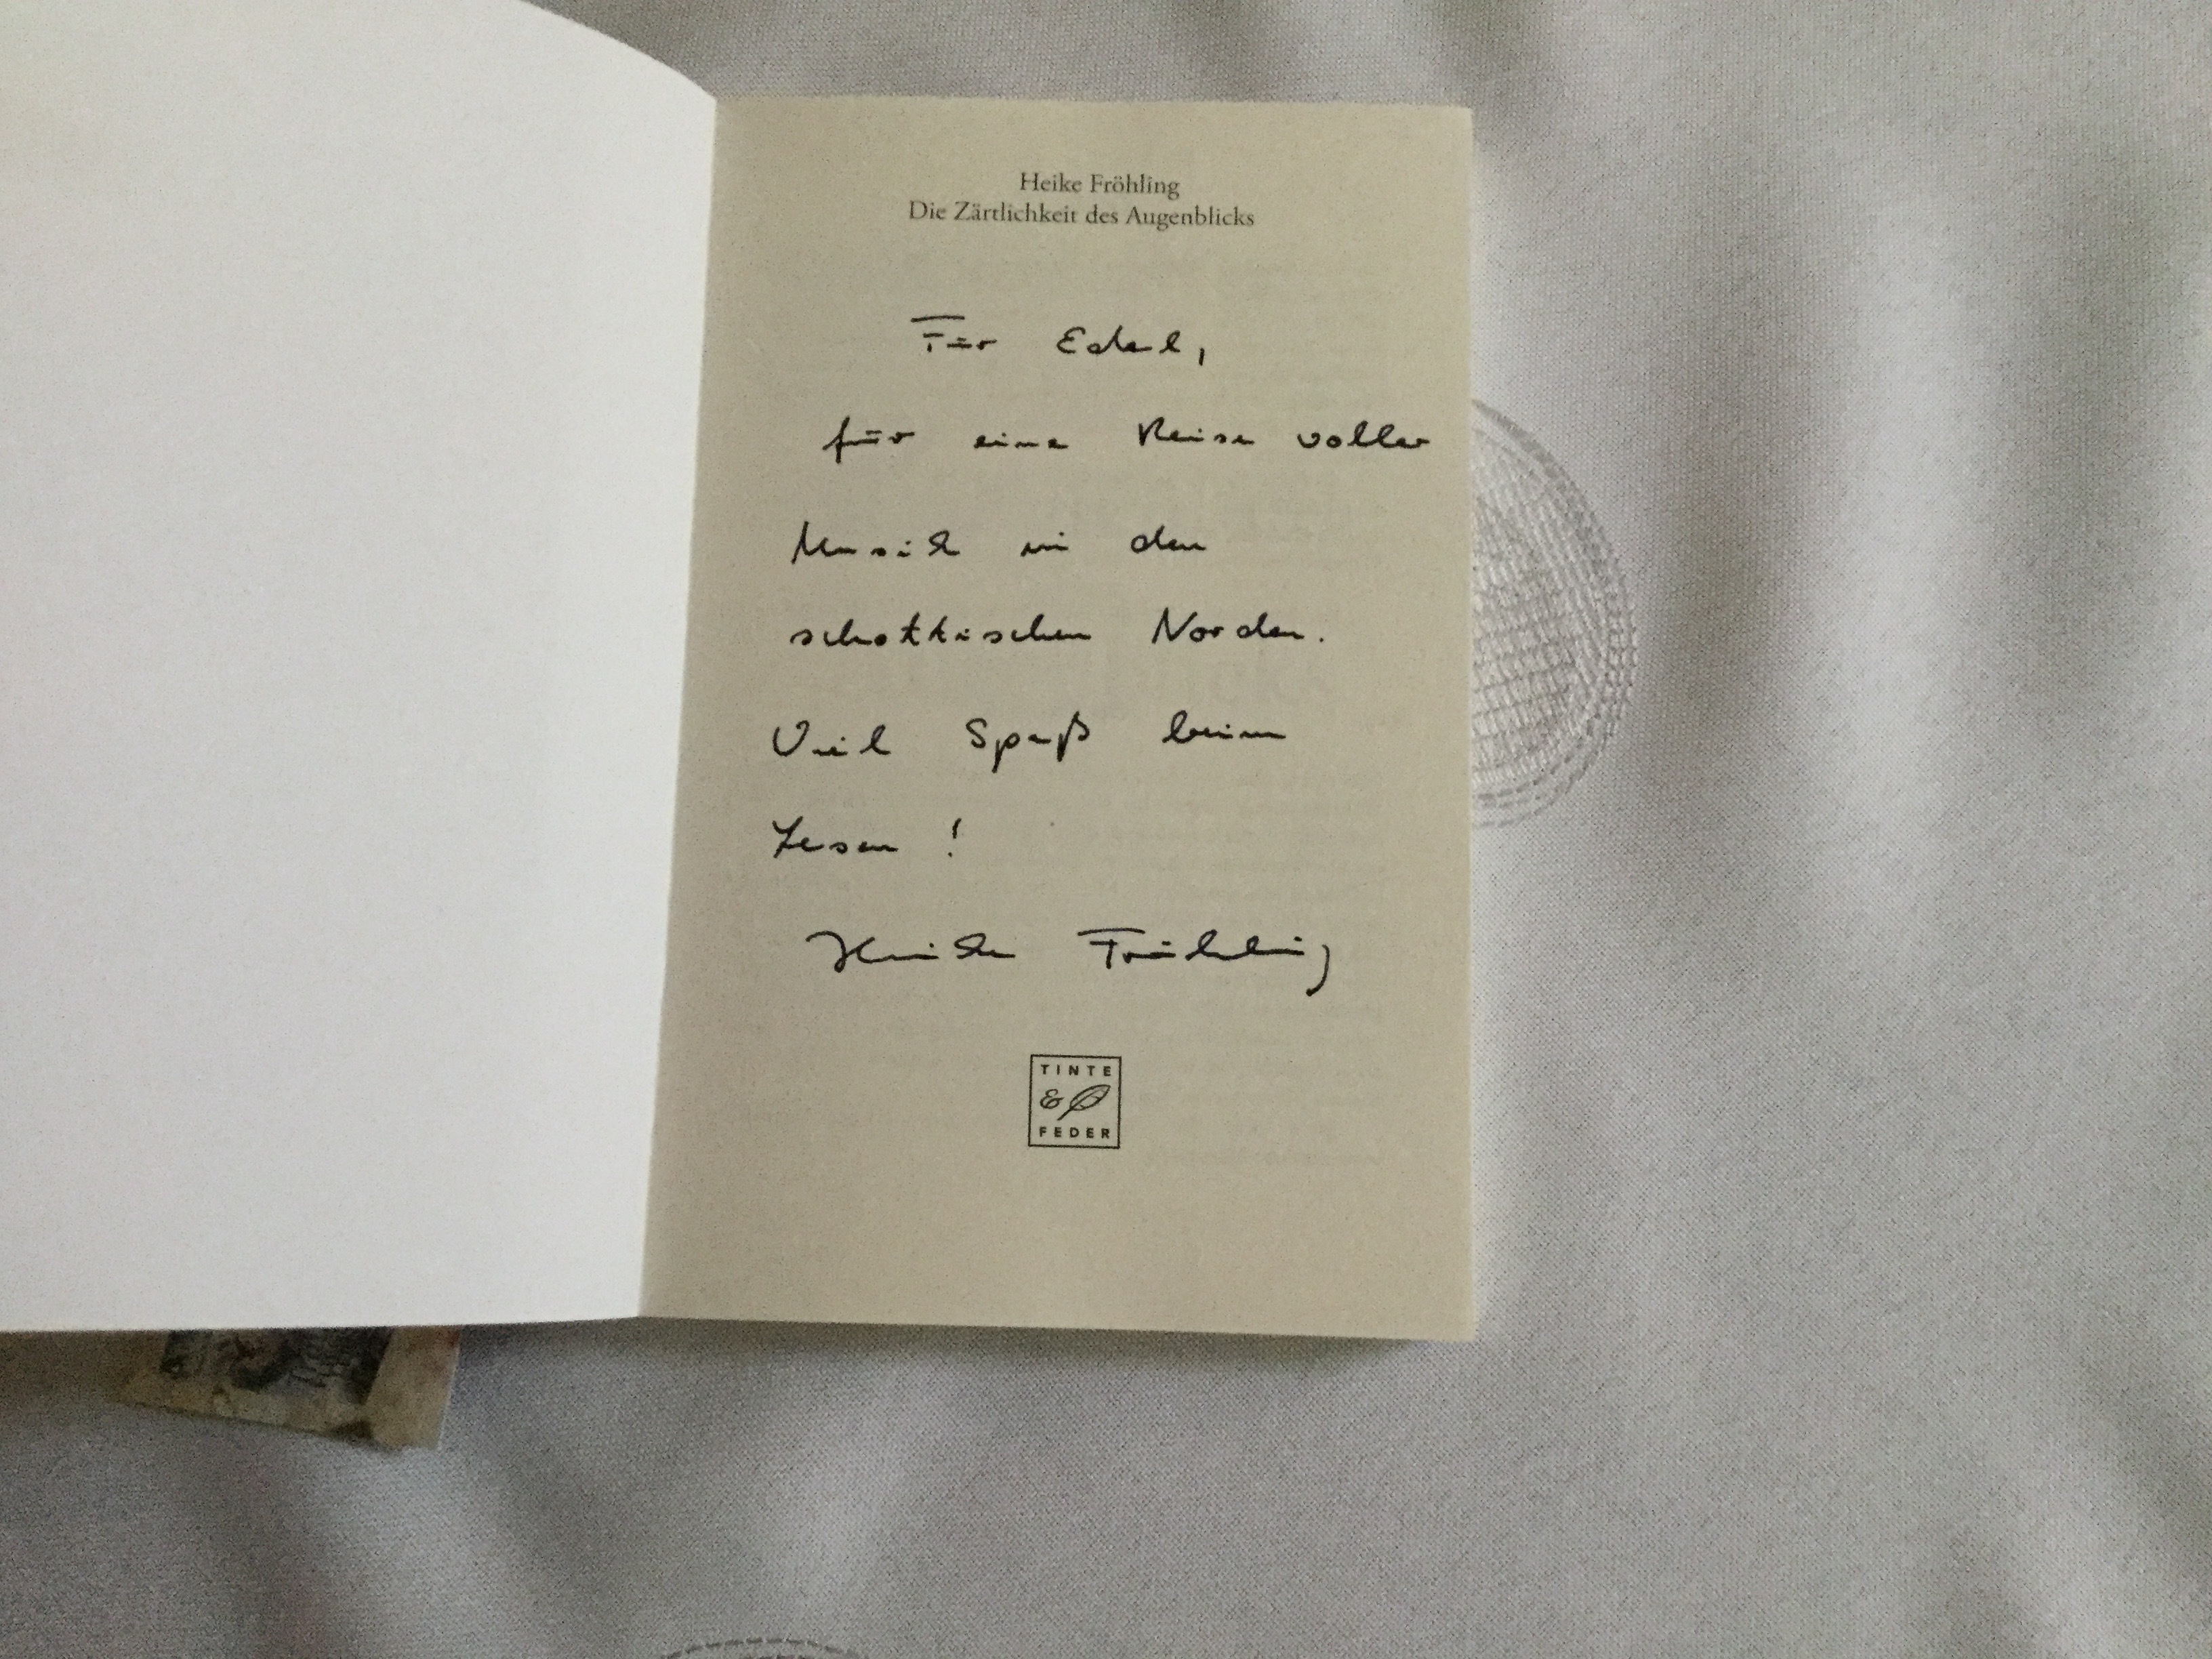 Heike Fröhling
Die Zärtlichkeit des Augenblicks
Für
für eine Reise voller
Musik in den
schottischen Norden.
Viel Spaß beim
Lesen !
Heike Fröhling
TINTE
&
FEDER